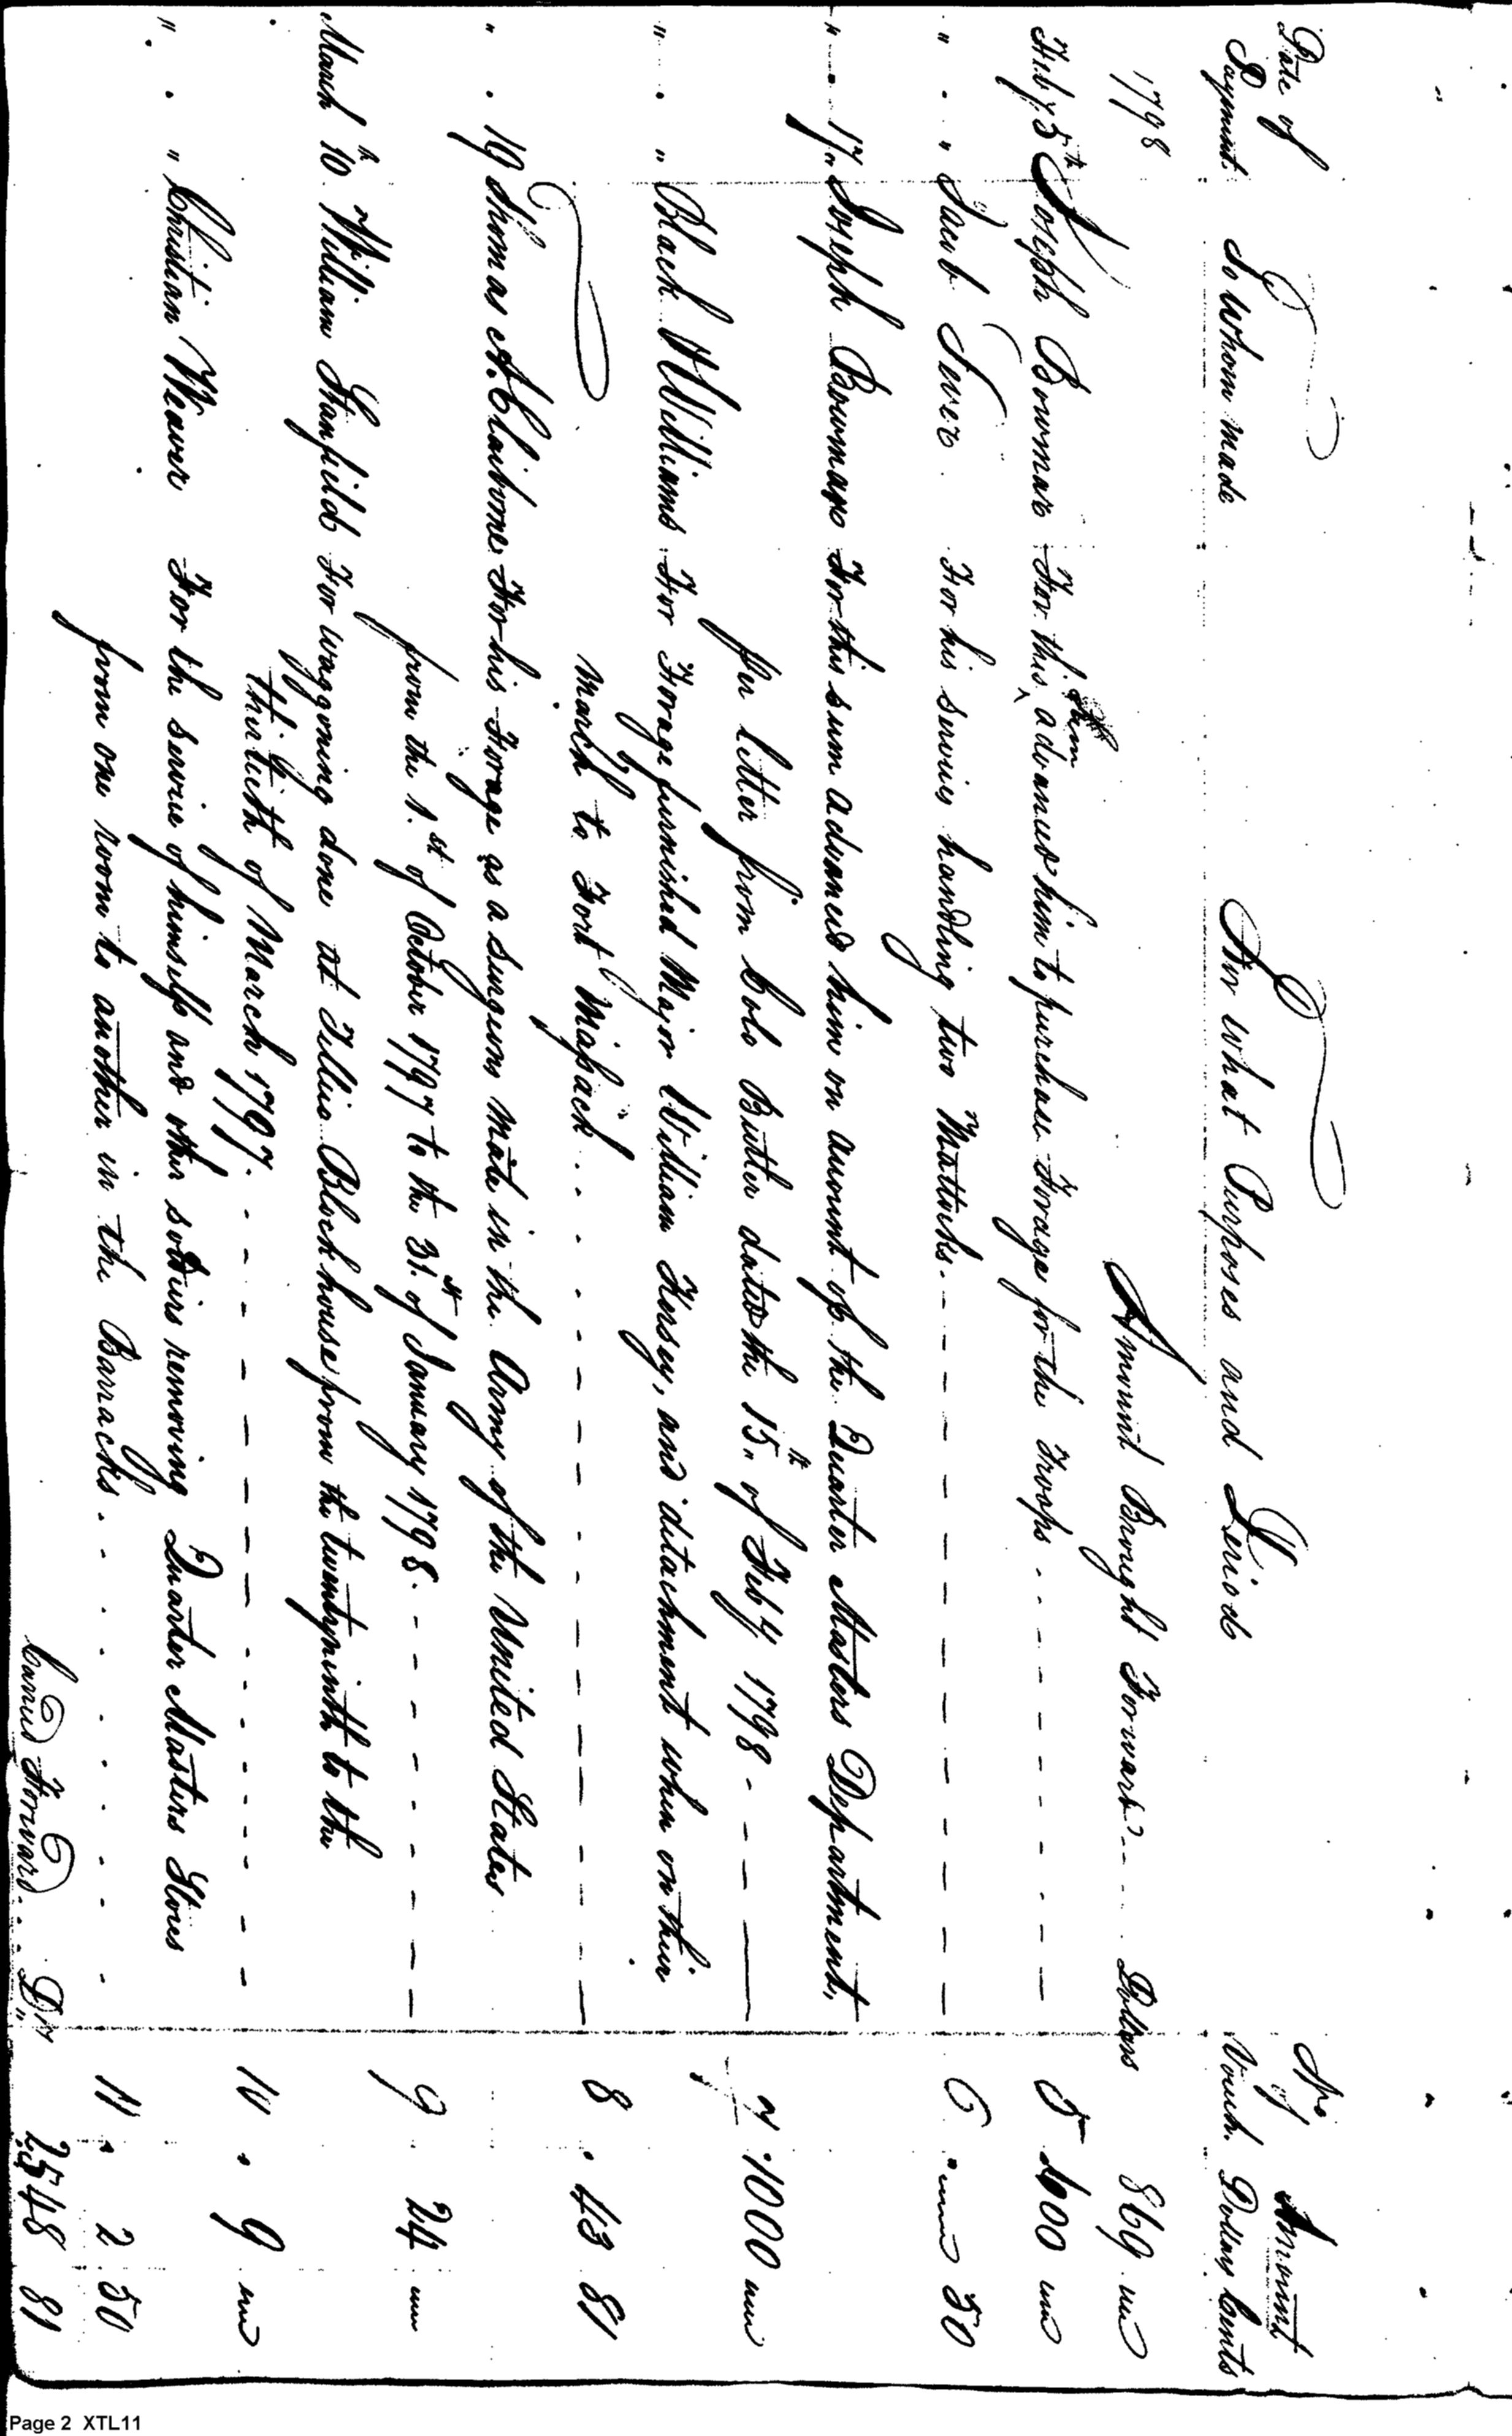 Date of Payment. To Whom made For what Purposes and Period No. of Vouch. Amount Dollars Cents
1798 Amount Brought Forward - - - Dollars 869 "
Feby 5th Joseph Bowman For this sum advanced him to purchase Forage for the Troops - - - 5 600 "
" " " Jacob For his services handling two Mattocks - - - 6 " 50
" " 17th Joseph Bowman For this sum advanced him on account of the Quarter Masters Department,
per letter from Colo Butler dated the 15th of Feby 1798 - - - 7 1000 "
" " " Black Williams For Forage furnished Major William Kersey, and detachment when on their
march to Fort Massack - - - 8 43 81
" " 19 Thomas A. Claiborne For his Forage as a surgeons mate in the Army of the United States
from the 1st of October 1797 to the 31st of January 1798 - - - 9 24 "
March 10th William Stanfield For waggoning done at Tellico Blockhouse from the twentyninth to the
thirtieth of March 1797 - - - 10 9 "
" " " Christian Weaver For the service of himself and other soldiers removing Quarter Masters Stores
from one room to another in the Barracks - - - 11 2 50
Carried Forward - - Drs 2548 81
Page 2 XTL11